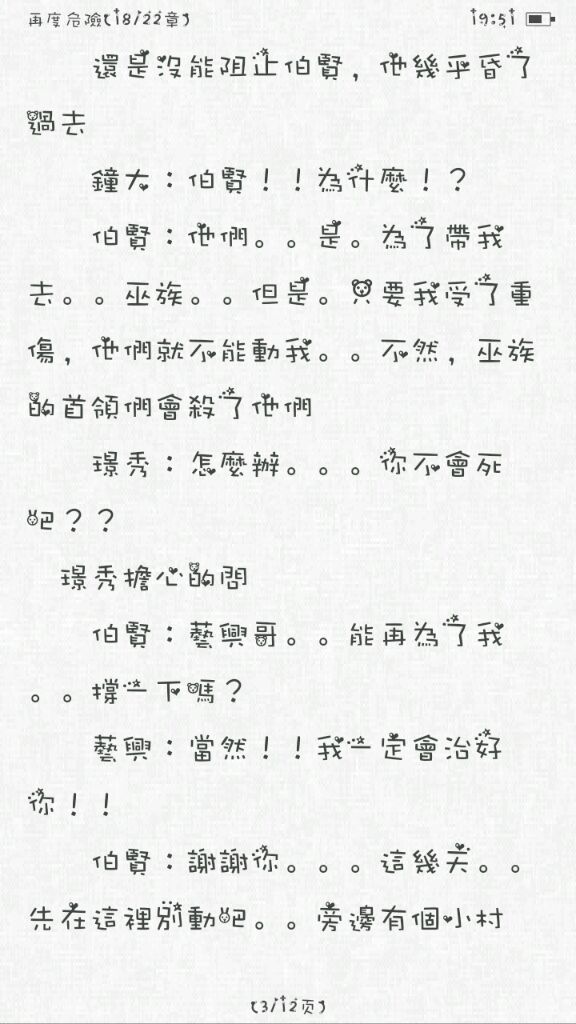 再度危險(18/22章) 19:51
還是沒能阻止伯賢，他幾乎昏了
過去
鐘大：伯賢！！為什麼！？
伯賢：他們。。是。為了帶我
去。。巫族。。但是。只要我受了重
傷，他們就不能動我。。不然，巫族
的首領們會殺了他們
璟秀：怎麼辦。。。你不會死
吧？？
璟秀擔心的問
伯賢：藝興哥。。能再為了我
。。撐一下嗎？
藝興：當然！！我一定會治好
你！！
伯賢：謝謝你。。。這幾天。。
先在這裡別動吧。。旁邊有個小村
(3/12页)